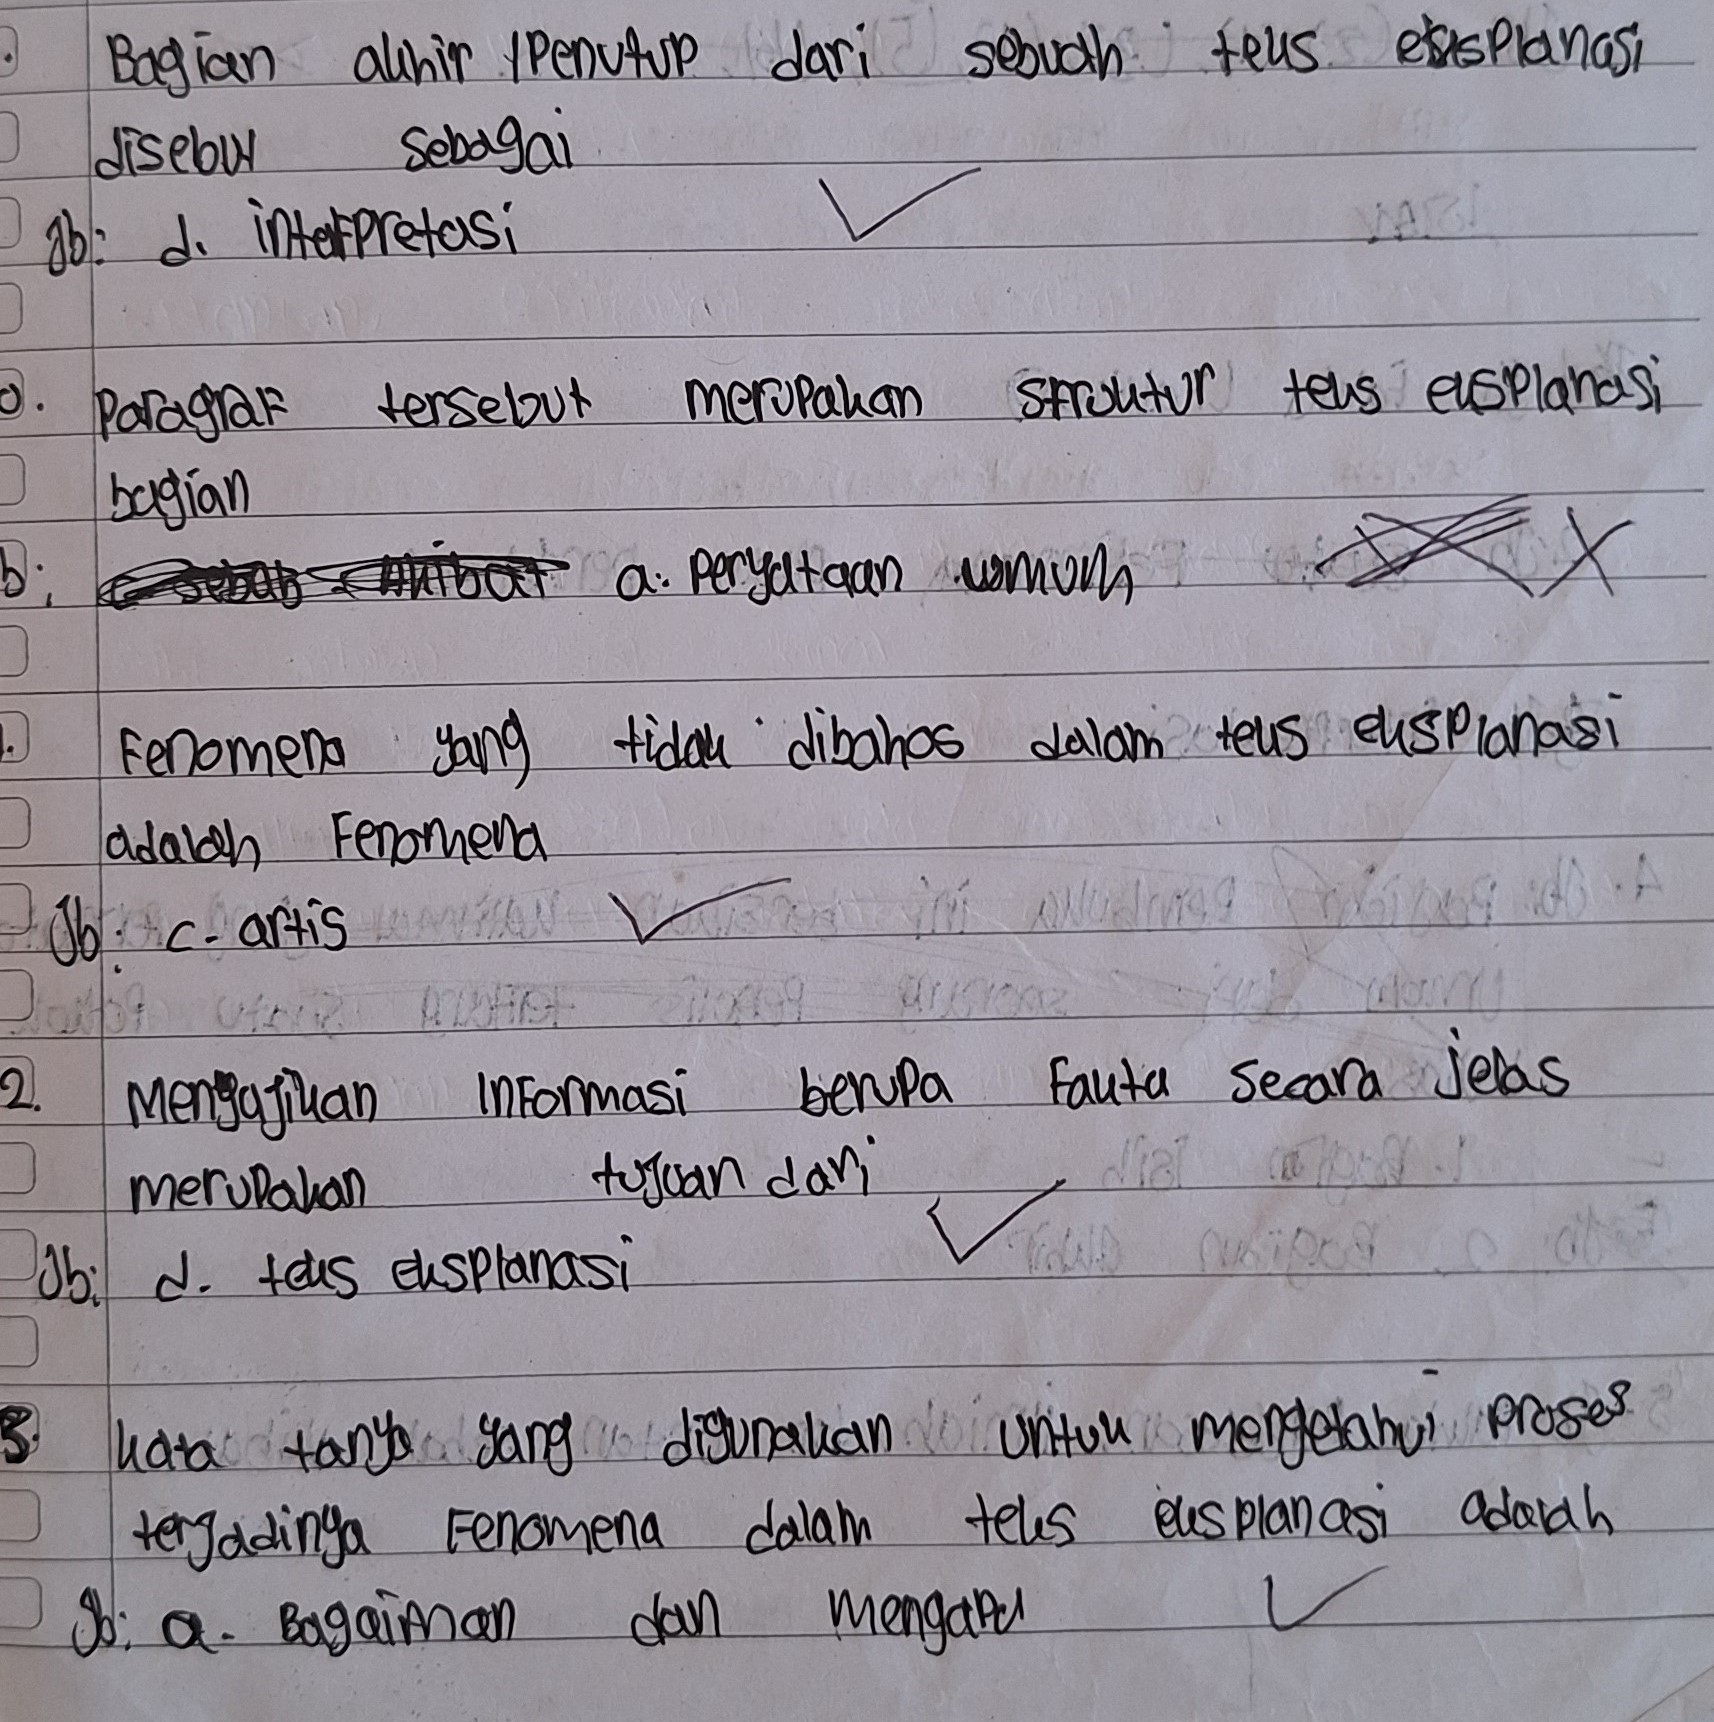 . Bagian akhir / Penutup dari sebuah teks eksplanasi
disebut sebagai
Jb: d. interpretasi
0. Paragraf tersebut merupakan struktur teks eksplanasi
bagian
b: sebab akibat a. peryataan umum
. Fenomena yang tidak dibahas dalam teks eksplanasi
adalah Fenomena
Jb: c. artis
2. Mengajikan Informasi berupa Fakta secara jelas
merupakan tujuan dari
Jb: d. teks eksplanasi
3. Kata tanya yang digunakan untuk mengetahui proses
terjadinya Fenomena dalam teks eksplanasi adalah
Jb: a. Bagaiman dan mengapa